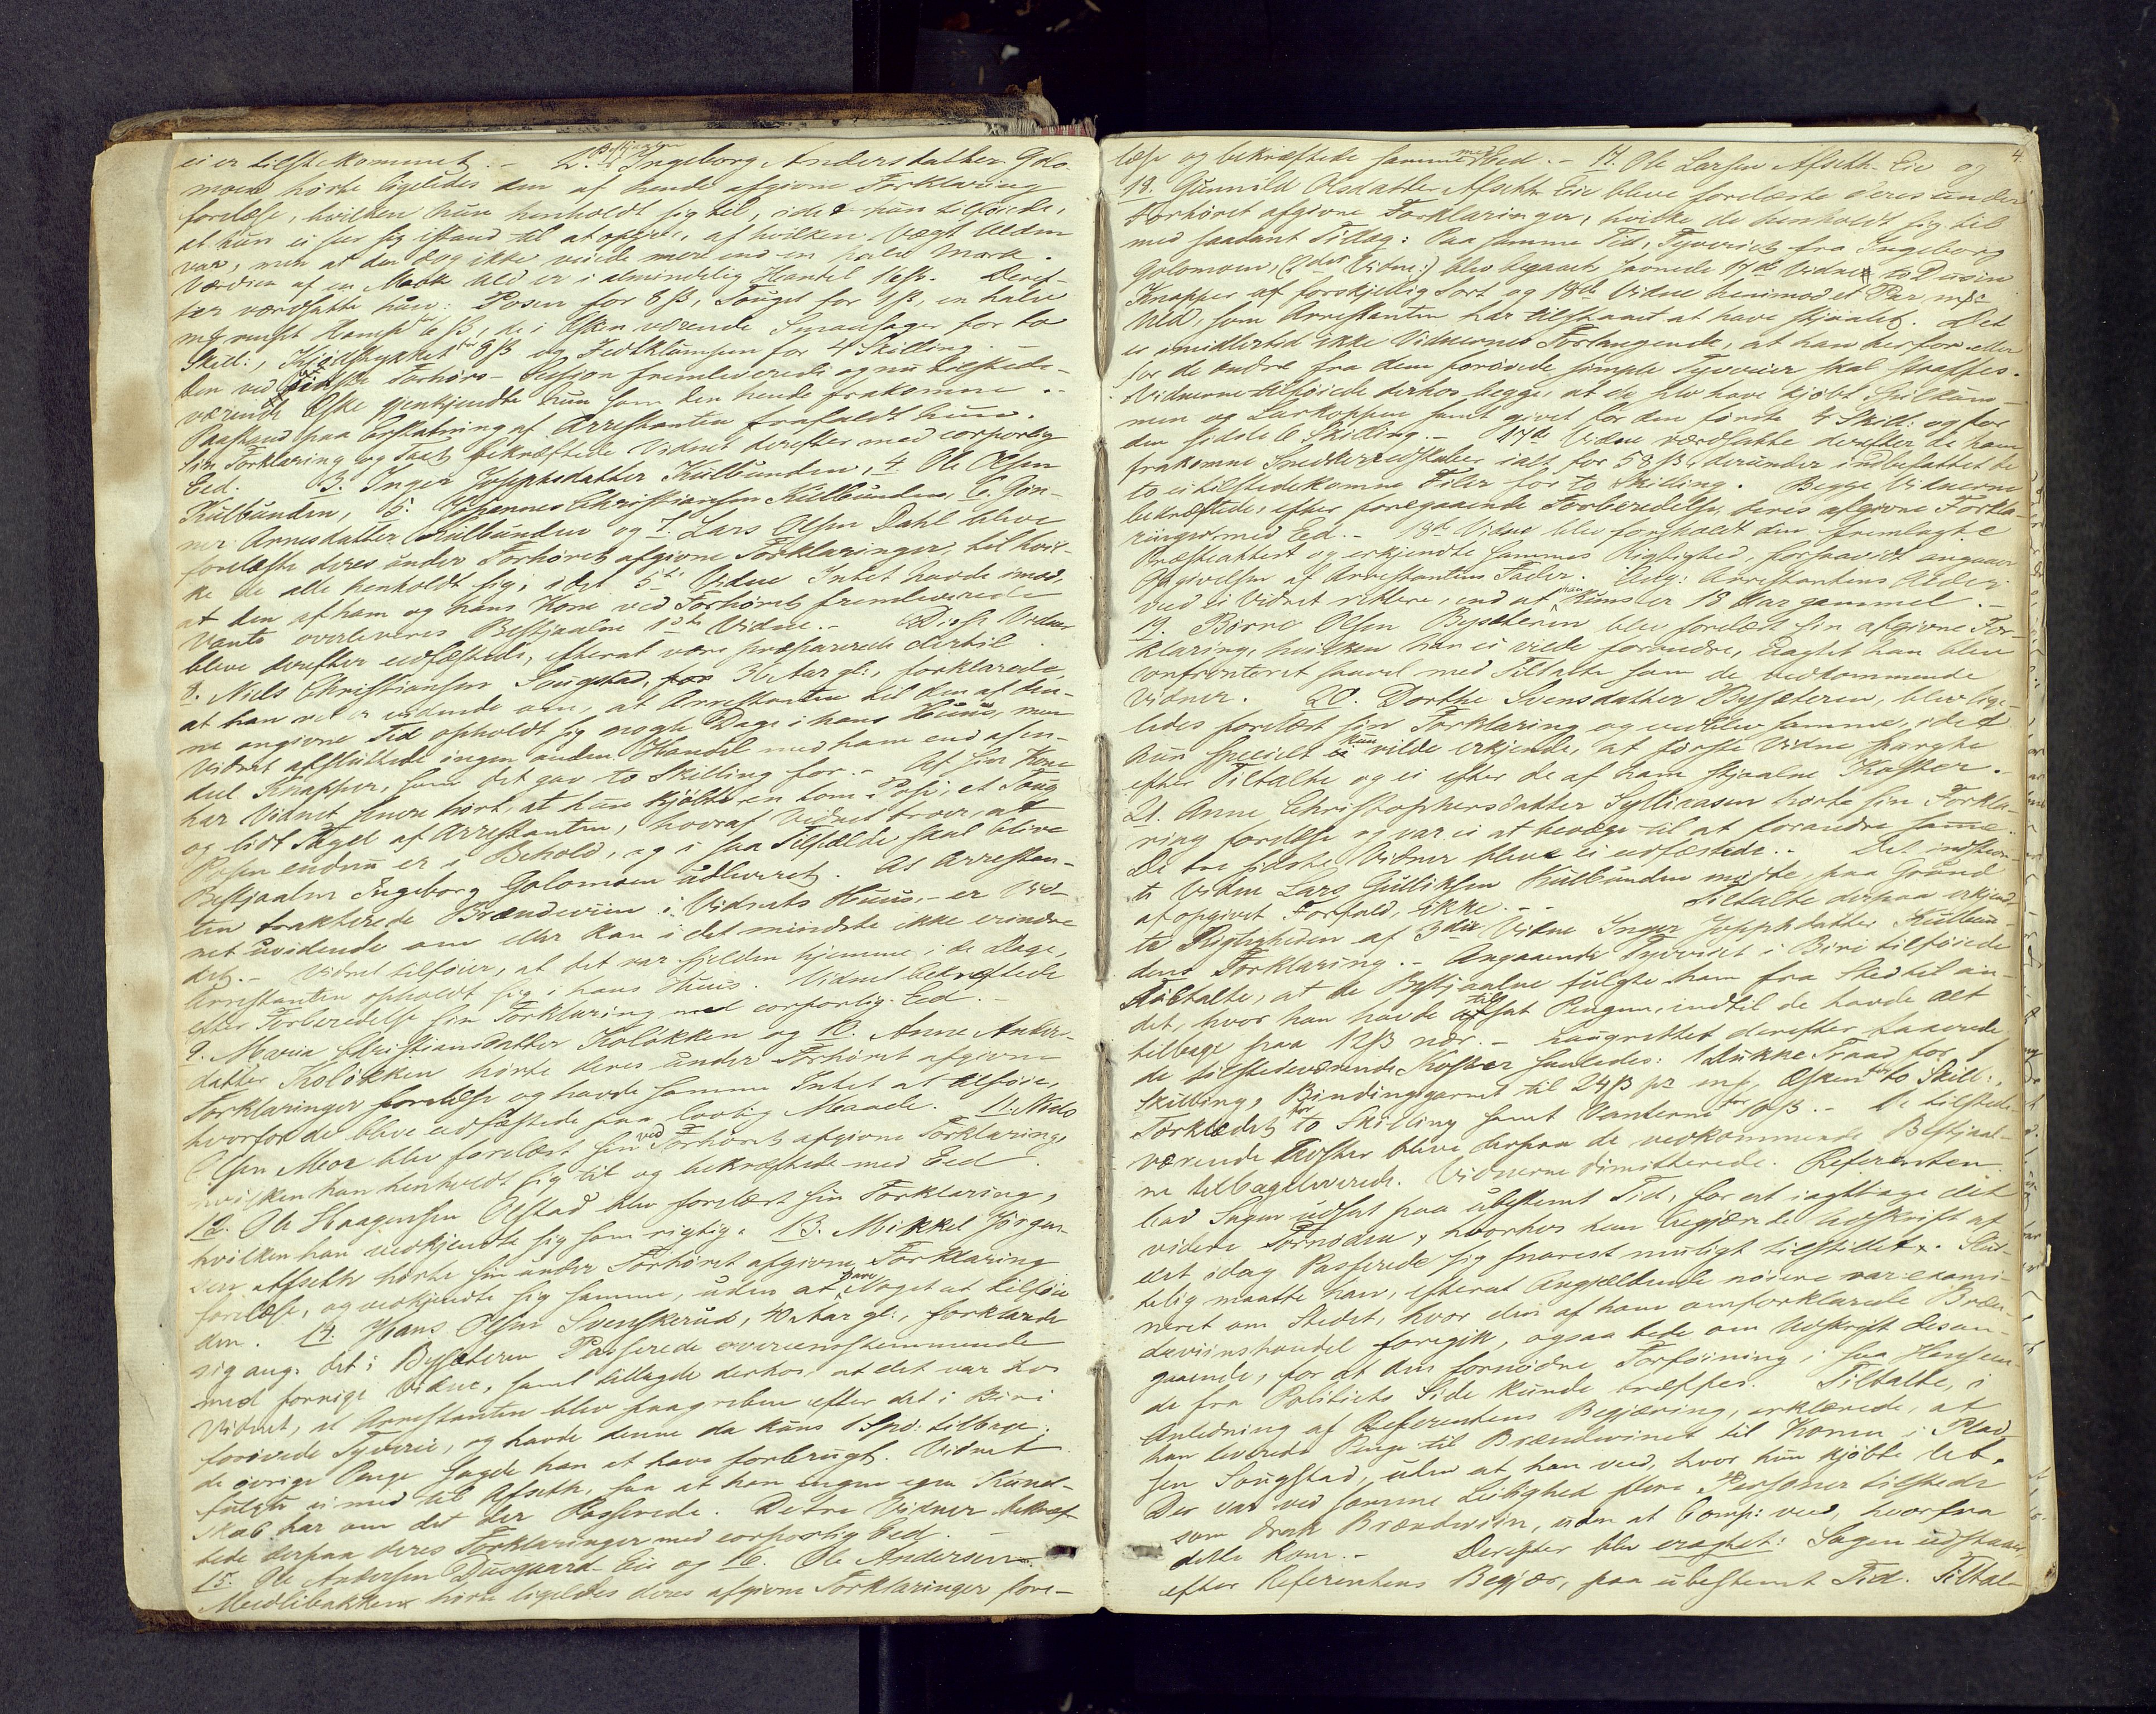 ei er tilstedekommet. - 2. Bestjaalne Ingeborg Andersdatter Golo-
moen hørte ligeledes den af hende afgivne Forklaring
forelæse, hvilken hun henholdt sig til, idet hun tilføiede,
at hun ei ser sig istand til at opgive, af hvilken Vægt Ulden
var, men at den dog ikke veiede mere end en halv Mark.
Værdien af en Mark Uld er i almindelig Handel 18 ß. Deref-
ter værdsatte hun: Posen for 8 ß, Touget for 4 ß, en halv
mk renset Hamp for 6 ß, de i Æsken værende Smaasager for to
Skill:, Kjødstykket for 8 ß og Fedtklumpen for 4 Skilling. -
Den ved sidste Forhørs-Session fremleverede og nu tilstede-
værende Æske gjenkjendte hun som den hende frakomne. -
Paastand paa Erstatning af Arrestanten frafaldt hun.
Sin Forklaring og Tab bekræftede Vidnet derefter med corporlig
Eed. 3. Inger Josephsdatter Kulbunden, 4. Ole Olsen
Kulbunden, 5. Johannes Christiansen Kulbunden, 6. Gön-
ner Arnesdatter Kulbunden og 7. Lars Olsen Dahl bleve
forelæste deres under Forhøret afgivne Forklaringer, til hvil-
ke de alle henholdt sig, idet 5te Vidne Intet havde imod,
at den af ham og hans Kone ved Forhøret fremleverede
Vante overleveres Bestjaalne 1ste Vidne. - Disse Vidner
bleve derefter eedfæstede, efterat være præparerede dertil.
8. Niels Christiansen Sougstad, 36 Aar gl:, forklarede,
at han vel er vidende om, at Arrestanten til den af den-
ne angivne Tid opholdt sig nogle Dage i hans Huus, men
Vidnet afsluttede ingen anden Handel med ham end af en-
deel Knapper, som det gav to Skilling for. - Af sin Kone
har Vidnet senere hørt, at hun kjøbte en tom Pose, et Toug
og lidt Tagel af Arrestanten, hvoraf Vidnet troer, at
Posen endnu er i Behold, og i saa Tilfælde skal blive
Bestjaalne Ingeborg Golomoen udleveret. At Arrestan-
ten trakterede Brændeviin i Vidnets Huus, er Vid-
net uvidende om eller kan i det mindste ikke erindre
det. - Vidnet tilføier, at det var sjelden hjemme i de Dage,
Arrestanten opholdt sig i hans Huus. Vidnet bekræftede
efter Forberedelse sin Forklaring med corporlig Eed. -
9. Maria Christiansdatter Koløkken og 10. Anne Anders-
datter Koløkken hørte deres under Forhøret afgivne
Forklaringer forelæse og havde samme Intet at tilføie,
hvorfor de bleve eedfæstede paa lovlig Maade. 11. Niels
Olsen Moe blev forelæst sin ved Forhøret afgivne Forklaring,
hvilken han henholdt sig til og bekræftede med Eed.
12. Ole Haagensen Ølstad blev forelæst sin Forklaring,
hvilken han vedkjendte sig som rigtig. 13. Mikkel Jörgen-
sen Afseth hørte sin under Forhøret afgivne Forklaring
forelæse, og vedkjendte sig samme, uden at have Noget at tilføie
den. 14. Hans Olsen Svenskerud, 40 Aar gl:, forklarede
sig ang. det i Bysæteren Passerede overeensstemmende
med forrige Vidne, samt tillagde derhos, at det var hos
Vidnet, at Arrestanten blev paagreben efter det i Biri
forøvede Tyverie, og havde denne da kuns 1 Spd: tilbage;
de øvrige Penge sagde han at have forbrugt. Vidnet
fulgte ei med til Afseth, saa at han ingen egen Kund-
skab har om det der Passerede. De tre Vidner bekræf-
tede derpaa deres Forklaringer med corporlig Eed. -
15. Ole Andersen Duegaard-Eie og 16. Ole Andersen
Meelibakken hørte ligeledes deres afgivne Forklaringer fore-
4.
læse og bekræftede samme med Eed. - 17. Ole Larsen Afseth-Eie og
18. Gunnild Olsdatter Afseth-Eie bleve forelæste deres under
Forhøret afgivne Forklaringer, hvilke de henholdt sig til
med saadant Tillæg: Paa samme Tid, Tyveriet fra Ingeborg
Golomoen, (2det Vidne:) blev begaaet, savnede 17de Vidne to Dusin
Knapper af forskjellig Sort og 18de Vidne henimod et Par mk
Uld, som Arrestanten har tilstaaet at have stjaalet. Det
er imidlertid ikke Vidnernes Forlangende, at han herfor eller
for de andre fra dem forøvede simple Tyverier skal straffes.
Vidnerne tilføiede derhos begge, at de selv have kjøbt Spilkum-
men og Larkoppen samt givet for den første 4 Skill: og for
den sidste 6 Skilling. - 17de Vidne værdsatte derefter de ham
frakomne Snedkerredskaber ialt for 58 ß, derunder indbefattet de
to ei tilstedekomne Filer for to Skilling. Begge Vidnerne
bekræftede, efter foregaaende Forberedelse, deres afgivne Forkla-
ringer med Eed. - 18de Vidne blev foreholdt den fremlagte
Præsteattest og erkjendte sammes Rigtighed, forsaavidt angaaer
Opgivelsen af Arrestantens Fader. Ang: Arrestantens Alder
veed ei Vidnet rettere, end at han kuns er 18 Aar gammel. -
19. Børre Olsen Bysæteren blev forelæst sin afgivne For-
klaring, hvilken han ei vilde forandre, uagtet han blev
confronteret saavel med Tiltalte som de vedkommende
Vidner. 20. Dorthe Svensdatter Bysæteren, blev lige-
ledes forelæst sin Forklaring og vedblev samme, idet
hun specielt kun vilde erkjende, at første Vidne spurgte
efter Tiltalte og ei efter de af ham stjaalne Koster. -
21. Anne Christophersdatter Sylliaasen hørte sin Forkla-
ring forelæse og var ei at bevæge til at forandre samme.
De tre sidste Vidner bleve ei eedfæstede. - Det indstevn-
te Vidne Lars Gulliksen Kulbunden mødte, paa Grund
af opgivet Forfald, ikke. - Tiltalte derpaa erkjend-
te Rigtigheden af 3die Vidne Inger Josephsdatter Kulbun-
dens Forklaring. - Angaaende Tyveriet i Biri tilføiede
Tiltalte, at de Bestjaalne fulgte ham fra Sted til an-
det, hvor han havde afsat Pengene, indtil de havde Alt
tilbage paa 12 ß nær. - Laugrettet derefter taxerede
de tilstedeværende Koster saaledes: 1 Dukke Traad for 1
Skilling, Bindingsgarnet til 24 ß pr mk, Æsken for to Skill:,
Tørklædet for to Skilling samt Vanterne for 10 ß. - De tilstede-
værende Koster bleve derpaa de vedkommende Bestjaal-
ne tilbageleverede. Vidnerne dimitterede. Referenten
bad Sagen udsat paa ubestemt Tid, for at iagttage det
videre Fornødne, hvorhos han begjærede Udskrift af
det idag Passerede sig snarest muligt tilstillet. Slut-
telig maatte han, efterat Angjældende nøiere var exami-
neret om Stedet, hvor den af ham omforklarede Bræn-
deviinshandel foregik, ogsaa bede om Udskrift desan-
gaaende, for at den fornødne Forføining i saa Henseen-
de fra Politiets Side kunde træffes. Tiltalte, i
Anledning af Referentens Begjæring, erklærede, at
han leverede Penge til Brændeviinet til Konen i Plad-
sen Sougstad, uden at han veed, hvor hun kjøbte det.
Der var ved samme Leilighed flere Personer tilstede
som drak Brændeviin, uden at Comp: veed, hvorfra
dette kom. - Derefter blev eragtet: Sagen udstaaer,
efter Referentens Begjær, paa ubestemt Tid. Tiltal-